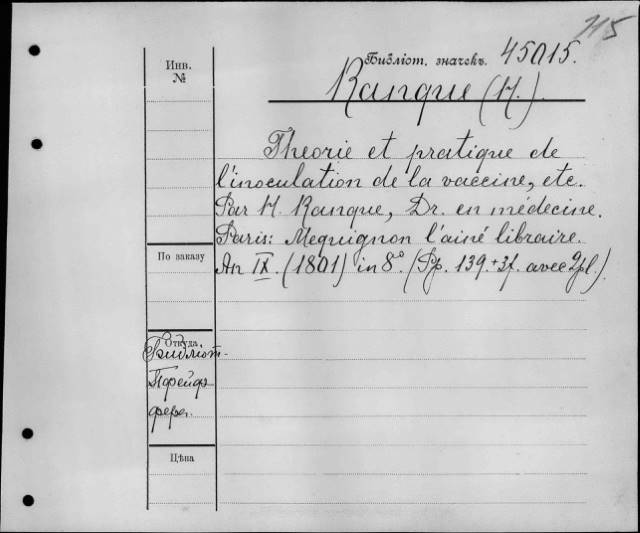 715
Инв.
№
Библіот. значекъ. 45015.
Ranque (H.)
Theorie et pratique de
l'inoculation de la vaccine, etc.
Par H. Ranque, Dr. en médecine.
Paris: Mequignon l'ainé libraire.
An IX. (1801) in 8º. (Pp. 139.+3f. avec 2pl.)
По заказу
Откуда.
Библіот.
Пфейф-
фера.
Цѣна